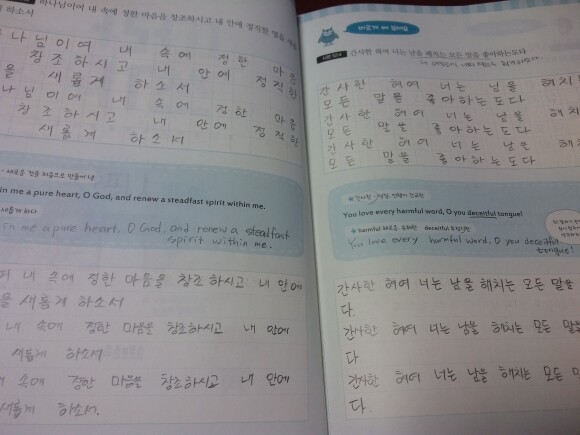 하나님이여 내 속에 정한 마음을 창조하시고 내 안에 정직한 영을 새롭
게 하소서
나님이여 내 속에 정한 마음
창조하시고 내 안에 정직한
을 새롭게 하소서
나님이여 내 속에 정한 마음
창조하시고 내 안에 정직한
새롭게 하소서
in me a pure heart, O God, and renew a steadfast spirit within me.
새롭게 하다
in me a pure heart, O God, and renew a steadfast
spirit within me.
내 속에 정한 마음을 창조하시고 내 안에
을 새롭게 하소서
내 속에 정한 마음을 창조하시고 내 안에
새롭게 하소서
속에 정한 마음을 창조하시고 내 안에
새롭게 하소서.
바르게 써 보아요
간사한 혀여 너는 남을 해치는 모든 말을 좋아하는도다
간사한 혀여 너는 남을 해치
모든 말을 좋아하는도다
간사한 혀여 너는 남을 해치
모든 말을 좋아하는도다
간사한 혀여 너는 남을 해치
모든 말을 좋아하는도다
You love every harmful word, O you deceitful tongue!
harmful 해로운, 유해한 deceitful
You love every harmful word, O you deceitful
tongue!
간사한 혀여 너는 남을 해치는 모든 말을
다.
간사한 혀여 너는 남을 해치는 모든 말을
다
간사한 혀여 너는 남을 해치는 모든 말
다.